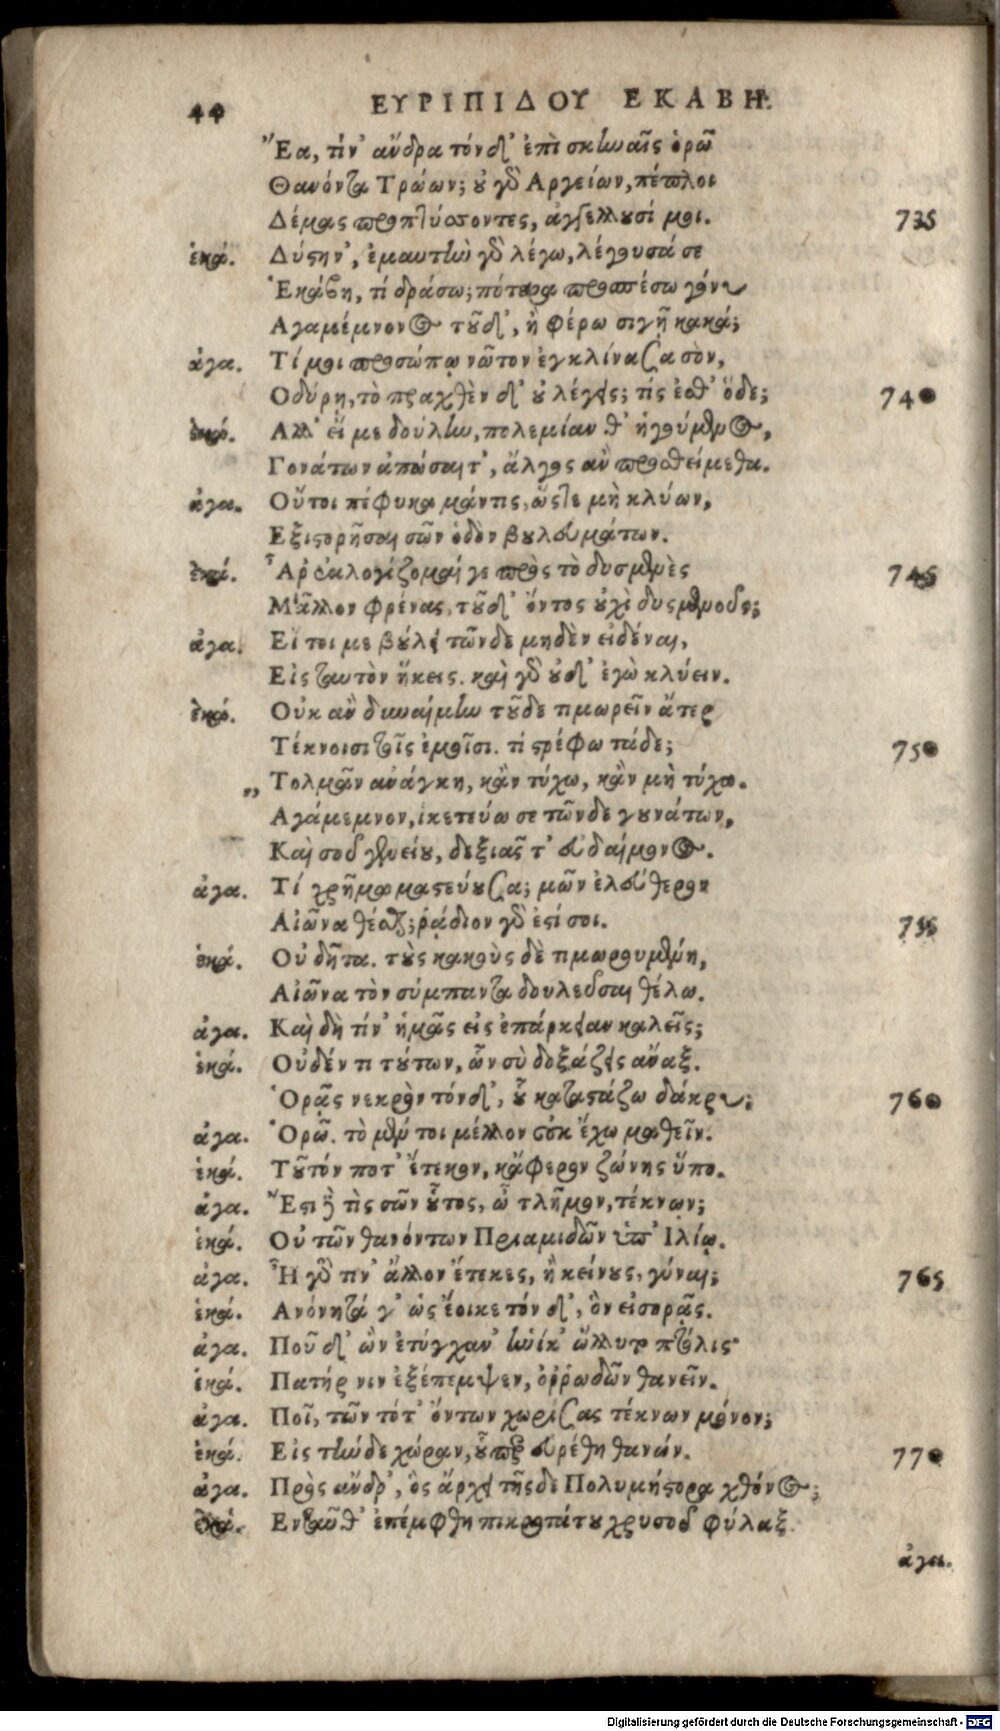 44 ΕΥΡΙΠΙΔΟΥ ΕΚΑΒΗ.
Ἔα, τίν' ἄνδρα τόνδ' ἐπὶ σκηναῖς ὁρῶ
Θανόντα Τρώων; οὐ γὰρ Ἀργείων, πέπλοι
Δέμας περιπτύσσοντες, ἀγγέλλουσί μοι. 735
ἑκά. Δύστην', ἐμαυτὴν γὰρ λέγω, λέγουσά σε
Ἑκάβη, τί δράσω; πότερα προσπέσω γόνυ
Αγαμέμνονος τοῦδ', ἢ φέρω σιγῇ κακά;
ἀγα. Τί μοι προσώπῳ νῶτον ἐγκλίνασα σὸν,
Οδύρῃ, τὸ πραχθὲν δ' οὐ λέγεις; τίς ἐσθ' ὅδε; 740
ἑκά. Αλλ' εἴ με δούλην, πολεμίαν θ' ἡγούμενος,
Γονάτων ἀπώσαιτ', ἄλγος ἂν προσθείμεθα.
ἀγα. Οὔτοι πέφυκα μάντις, ὥστε μὴ κλύων,
Εξιστορῆσαι σῶν ὁδὸν βουλευμάτων.
ἑκά. Ἆρ' ἐκλογίζομαί γε πρὸς τὸ δυσμενὲς 745
Μᾶλλον φρένας, τοῦδ' ὄντος οὐχὶ δυσμενοῦς;
ἀγα. Εἴ τοι με βούλει τῶνδε μηδὲν εἰδέναι,
Εἰς ταυτὸν ἥκεις. καὶ γὰρ οὐδ' ἐγὼ κλύειν.
ἑκά. Οὐκ ἂν δυναίμην τοῦδε τιμωρεῖν ἄτερ
Τέκνοισι τοῖς ἐμοῖσι. τί στρέφω τάδε; 750
„ Τολμᾶν ἀνάγκη, κἂν τύχω, κἂν μὴ τύχω.
Αγάμεμνον, ἱκετεύω σε τῶνδε γουνάτων,
Καὶ σοῦ γενείου, δεξιᾶς τ' εὐδαίμονος.
ἀγα. Τί χρῆμα μαστεύουσα; μῶν ἐλεύθερον
Αἰῶνα θέσθαι; ῥᾴδιον γὰρ ἐστί σοι. 755
ἑκά. Οὐ δῆτα. τοὺς κακοὺς δὲ τιμωρουμένη,
Αἰῶνα τὸν σύμπαντα δουλεῦσαι θέλω.
ἀγα. Καὶ δὴ τίν' ἡμᾶς εἰς ἐπάρκειαν καλεῖς;
ἑκά. Οὐδέν τι τούτων, ὧν σὺ δοξάζεις ἄναξ.
Ὁρᾷς νεκρὸν τόνδ', οὗ καταστάζω δάκρυ; 760
ἀγα. Ὁρῶ. τὸ μέν τοι μέλλον οὐκ ἔχω μαθεῖν.
ἑκά. Τοῦτόν ποτ' ἔτεκον, κἄφερον ζώνης ὕπο.
ἀγα. Ἔστι δὲ τὶς σῶν οὗτος, ὦ τλῆμον, τέκνων;
ἑκά. Οὐ τῶν θανόντων Πριαμιδῶν ὑπ' Ἰλίῳ.
ἀγα. Ἦ γὰρ τιν' ἄλλον ἔτεκες, ἢ κείνους, γύναι; 765
ἑκά. Ανόνητά γ' ὡς ἔοικε τόνδ', ὃν εἰσορᾷς.
ἀγα. Ποῦ δ' ὢν ἐτύγχαν' ἡνίκ' ὤλλυτο πτόλις·
ἑκά. Πατήρ νιν ἐξέπεμψεν, ὀῤῥωδῶν θανεῖν.
ἀγα. Ποῖ, τῶν τότ' ὄντων χωρίσας τέκνων μόνον;
ἑκά. Εἰς τήνδε χώραν, οὗπερ εὑρέθη θανών. 770
ἀγα. Πρὸς ἄνδρ', ὃς ἄρχει τῆσδε Πολυμήστορα χθόνος;
ἑκά. Ενταῦθ' ἐπέμφθη πικροτάτου χρυσοῦ φύλαξ.
ἀγα.
Digitalisierung gefördert durch die Deutsche Forschungsgemeinschaft - DFG